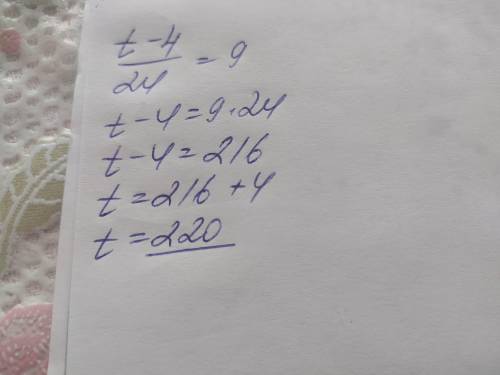 t-4/24 = 9
t-4=9·24
t-4=216
t=216+4
t=220